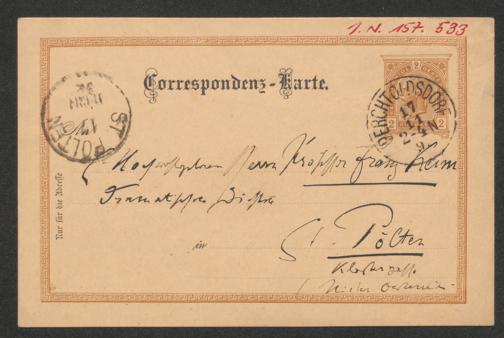 J. N. 157.533
Correspondenz-Karte.
2
2 2
PERCHTOLDSDORF
17
11
2-4N
ST PÖLTEN
17
Hochwohlgeboren Herrn Professor Franz Keim
Dramatischer Dichter
in St. Pölten
Klostergasse
Nieder Oesterreich
Nur für die Adresse